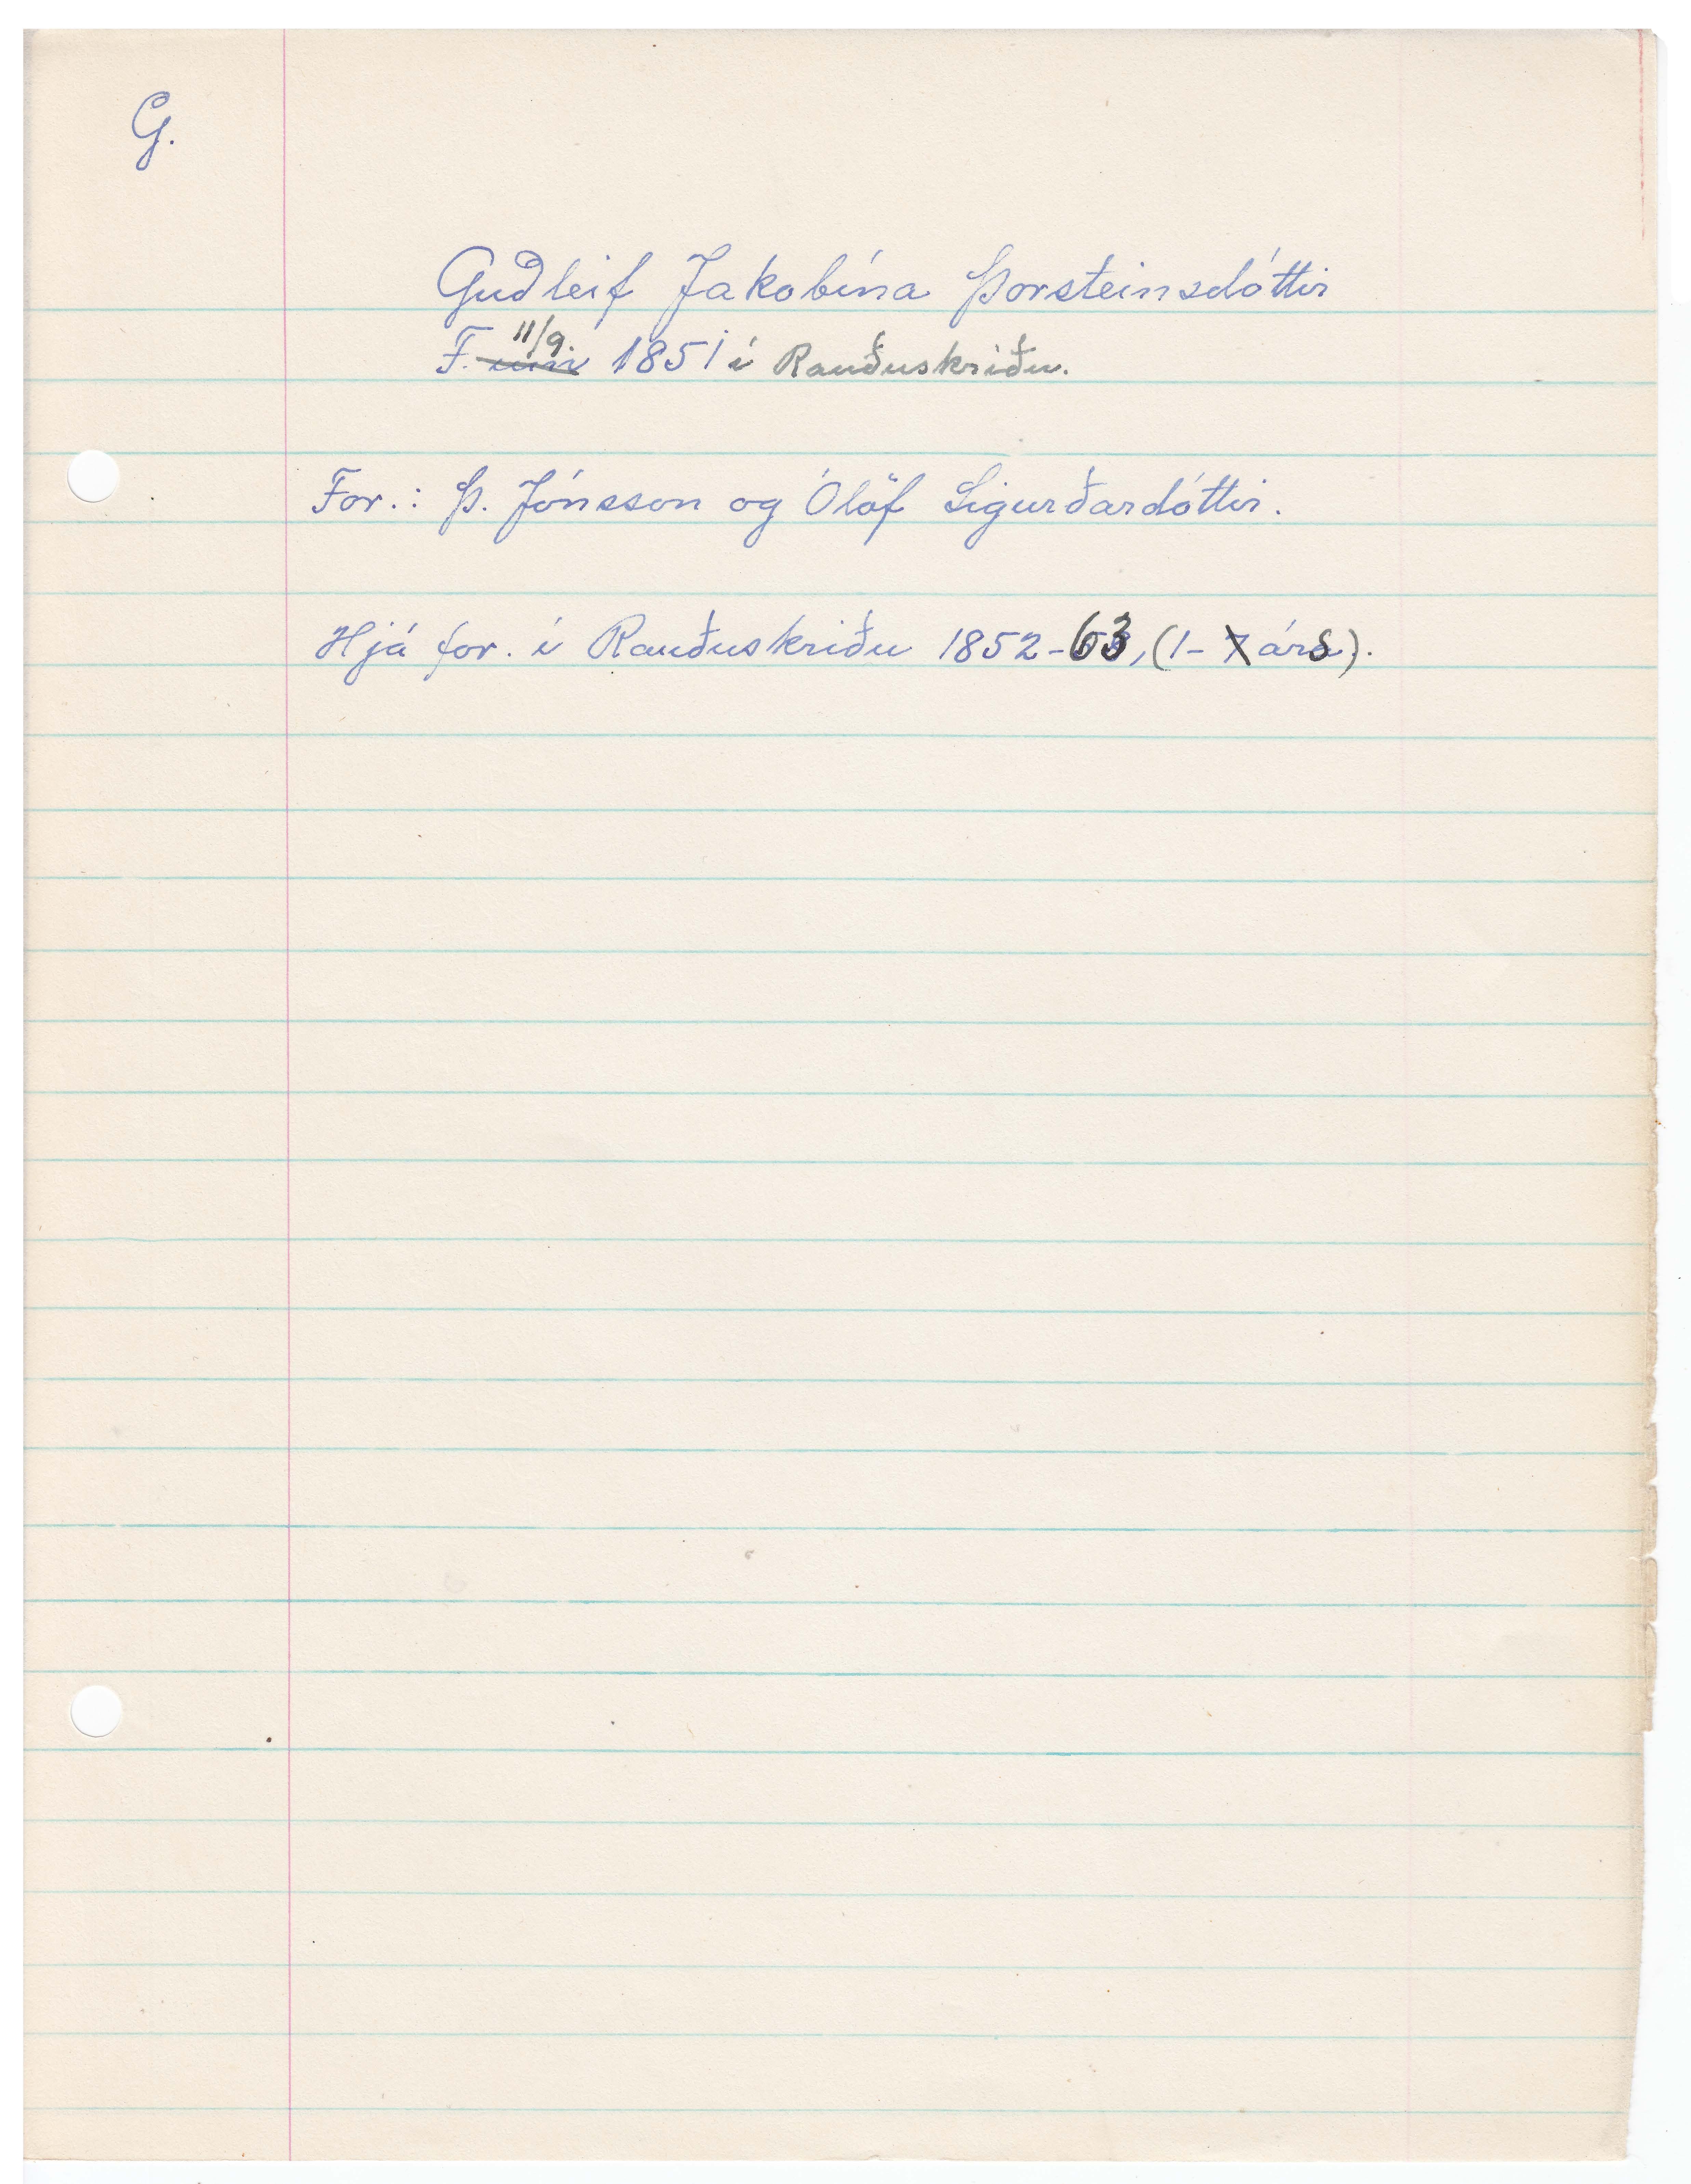 G.
Guðleif Jakobína Þorsteinsdóttir
F. 11/9. 1851 í Rauðuskriðu.
For.: Þ. Jónsson og Ólöf Sigurðardóttir.
Hjá for. í Rauðuskriðu 1852-63, (1- árs).